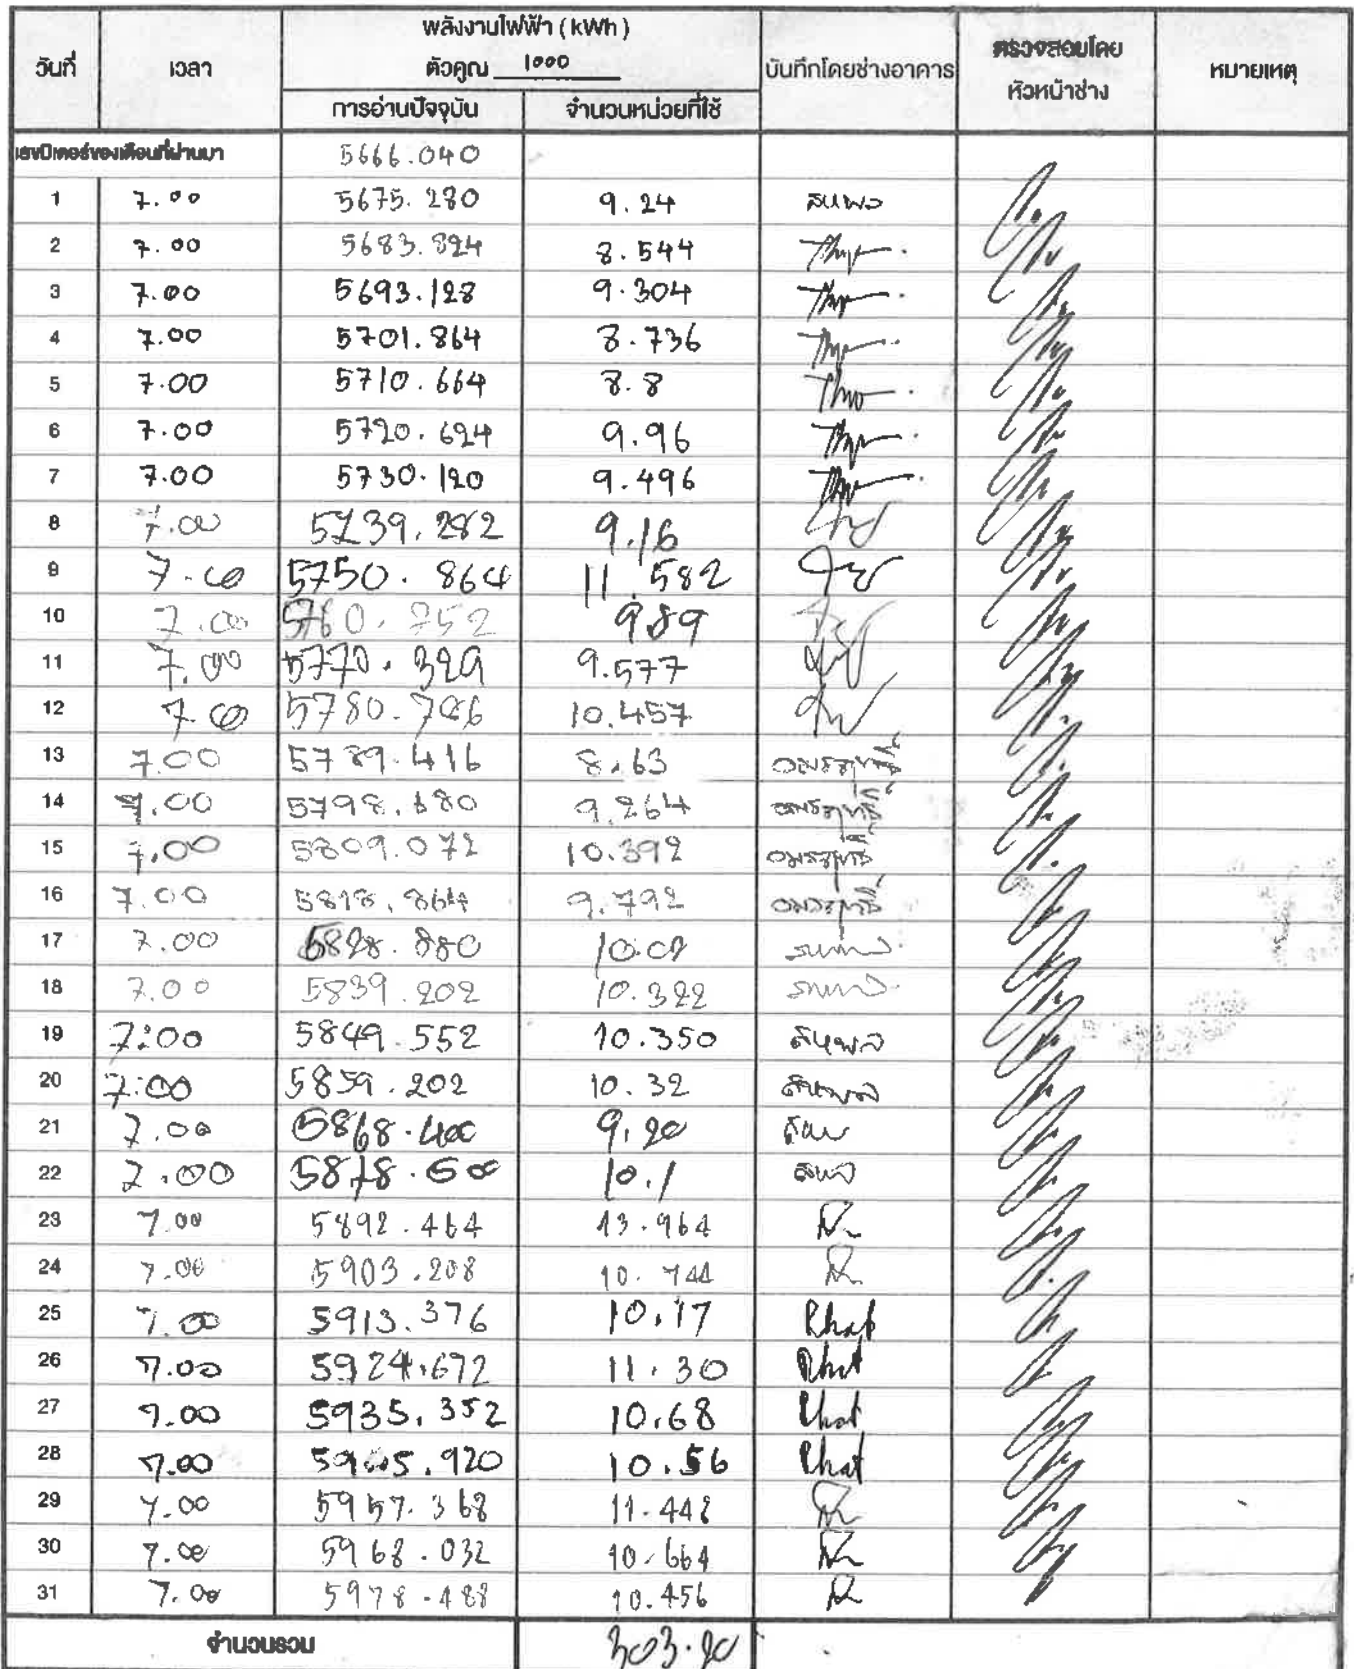 พลังงานไฟฟ้า ( kWh )
วันที่ เวลา ตัวคูณ 1000 บันทึกโดยช่างอาคาร ตรวจสอบโดย หัวหน้าช่าง หมายเหตุ
การอ่านปัจจุบัน จำนวนหน่วยที่ใช้
เลขมิเตอร์ของเดือนที่ผ่านมา 5666.040
1 7.00 5675.280 9.24 สหพล
2 7.00 5683.824 8.544
3 7.00 5693.128 9.304
4 7.00 5701.864 8.736
5 7.00 5710.664 8.8
6 7.00 5720.624 9.96
7 7.00 5730.120 9.496
8 7.00 5739.282 9.16
9 7.00 5750.864 11.582
10 7.00 5760.752 9.89
11 7.00 5770.329 9.577
12 7.00 5780.786 10.457
13 7.00 5789.416 8.63
14 7.00 5798.680 9.264
15 7.00 5809.072 10.392
16 7.00 5818.864 9.792
17 7.00 5828.880 10.02
18 7.00 5839.202 10.322
19 7:00 5849.552 10.350 สหพล
20 7:00 5859.202 10.32 สหพล
21 7.00 5868.400 9.20
22 7.00 5878.500 10.1
23 7.00 5892.464 13.964
24 7.00 5903.208 10.744
25 7.00 5913.376 10.17 Chat
26 7.00 5924.672 11.30 Chat
27 7.00 5935.352 10.68 Chat
28 7.00 5945.920 10.56 Chat
29 7.00 5957.368 11.448
30 7.00 5968.032 10.664
31 7.00 5978.488 10.456
จำนวนรวม 303.20